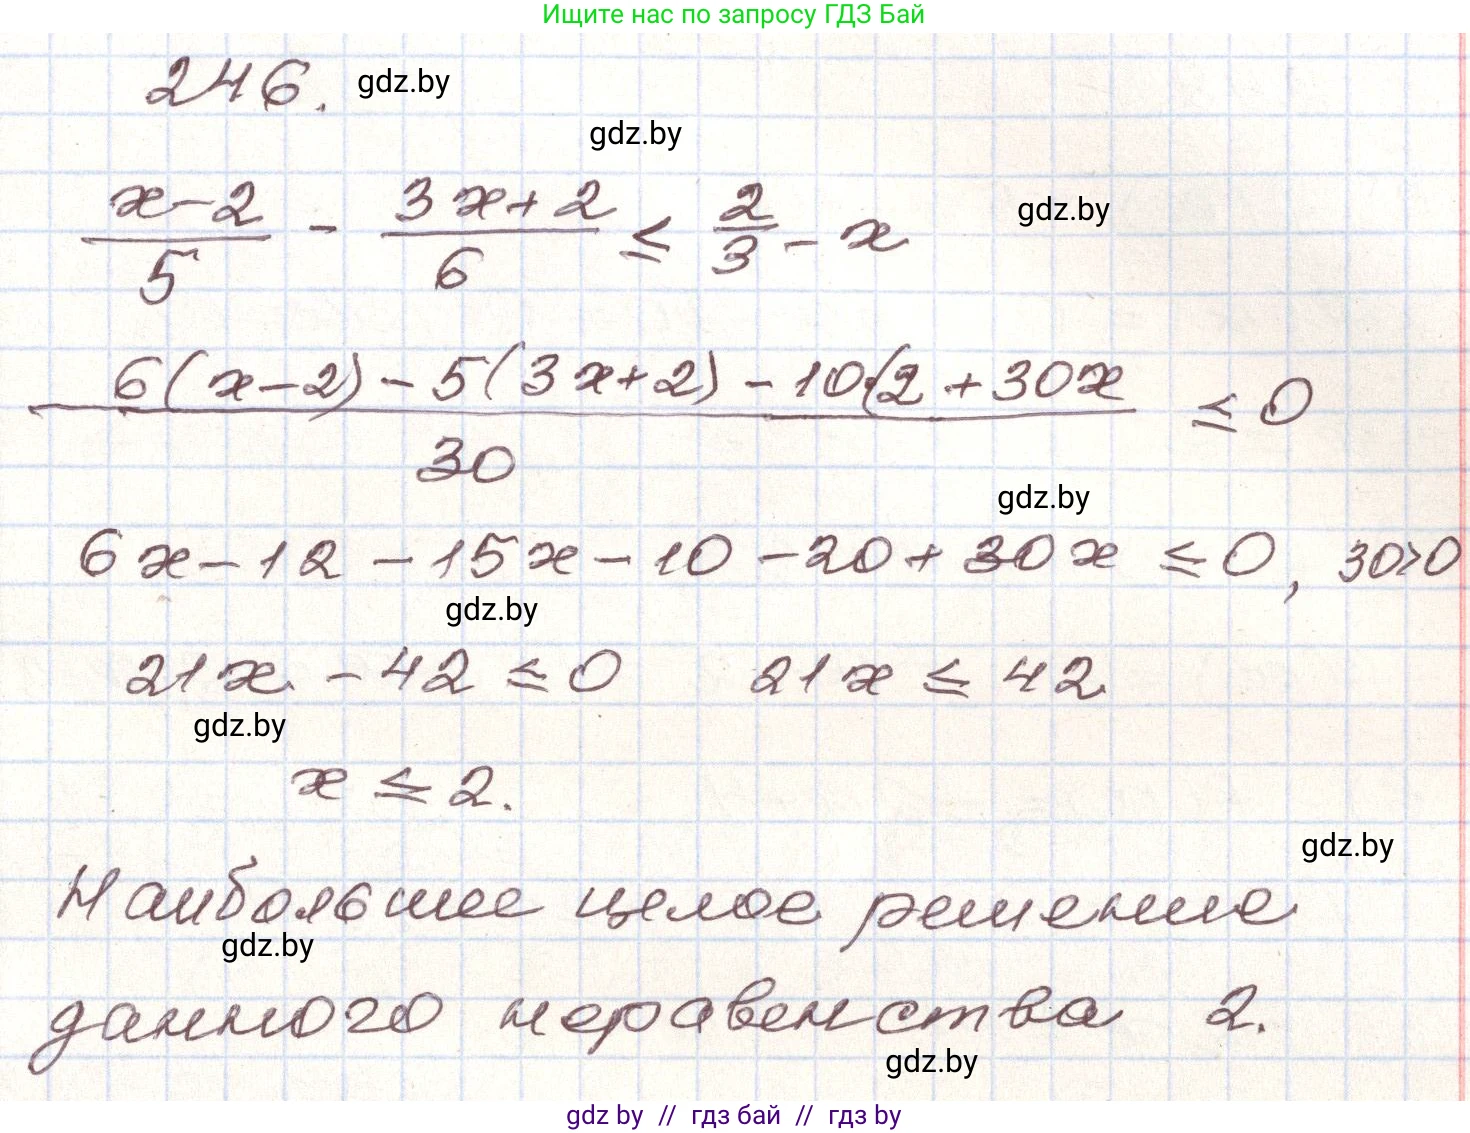 Ищите нас по запросу ГДЗ Бай
246. gdz.by
gdz.by
(x-2)/5 - (3x+2)/6 ≤ 2/3 - x gdz.by
(6(x-2) - 5(3x+2) - 10·(2 + 30x)/30 ≤ 0
gdz.by
6x - 12 - 15x - 10 - 20 + 30x ≤ 0, 30>0
gdz.by
21x - 42 ≤ 0 21x ≤ 42
gdz.by
x ≤ 2.
gdz.by
Наибольшее целое решение
gdz.by
данного неравенства 2.
gdz.by
gdz by // гдз бай // гдз by